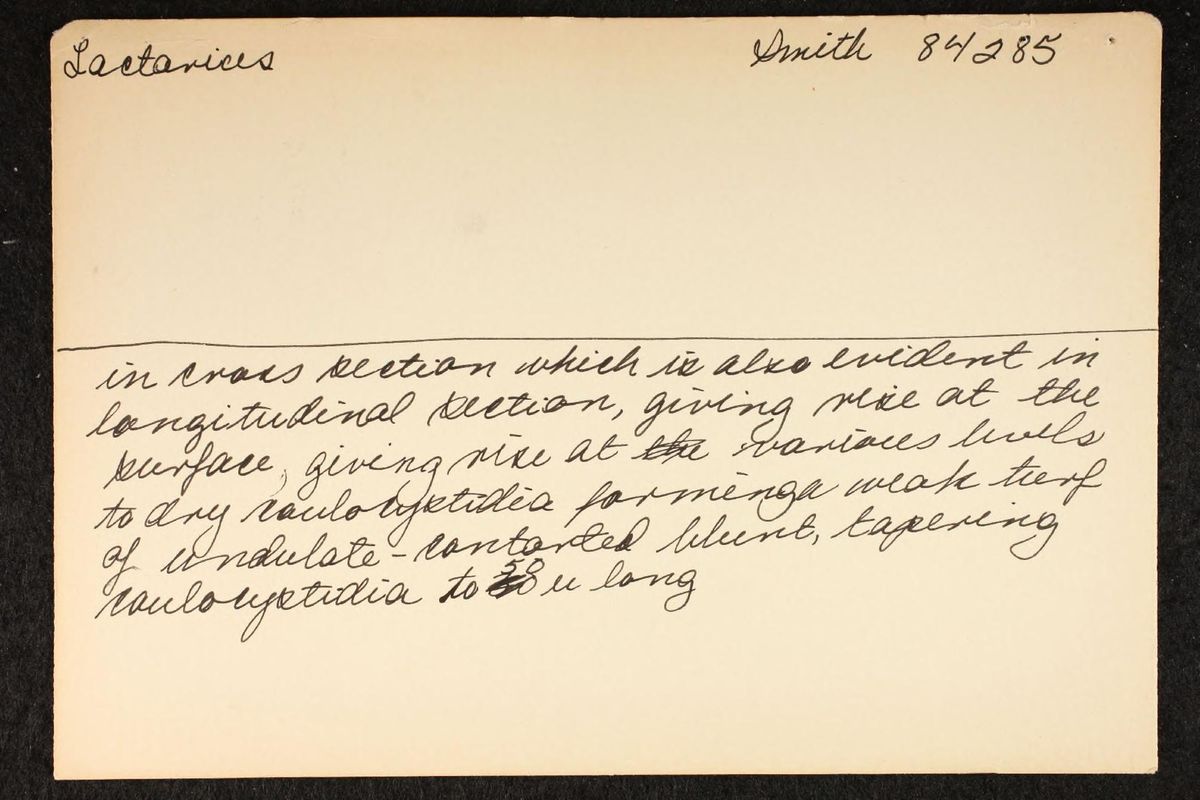 Lactarius Smith 84285
in cross section which is also evident in
longitudinal section, giving rise at the
surface, giving rise at the various levels
to dry caulocystidia forminga weak turf
of undulate-contorted blunt, tapering
caulocystidia to 50 u long